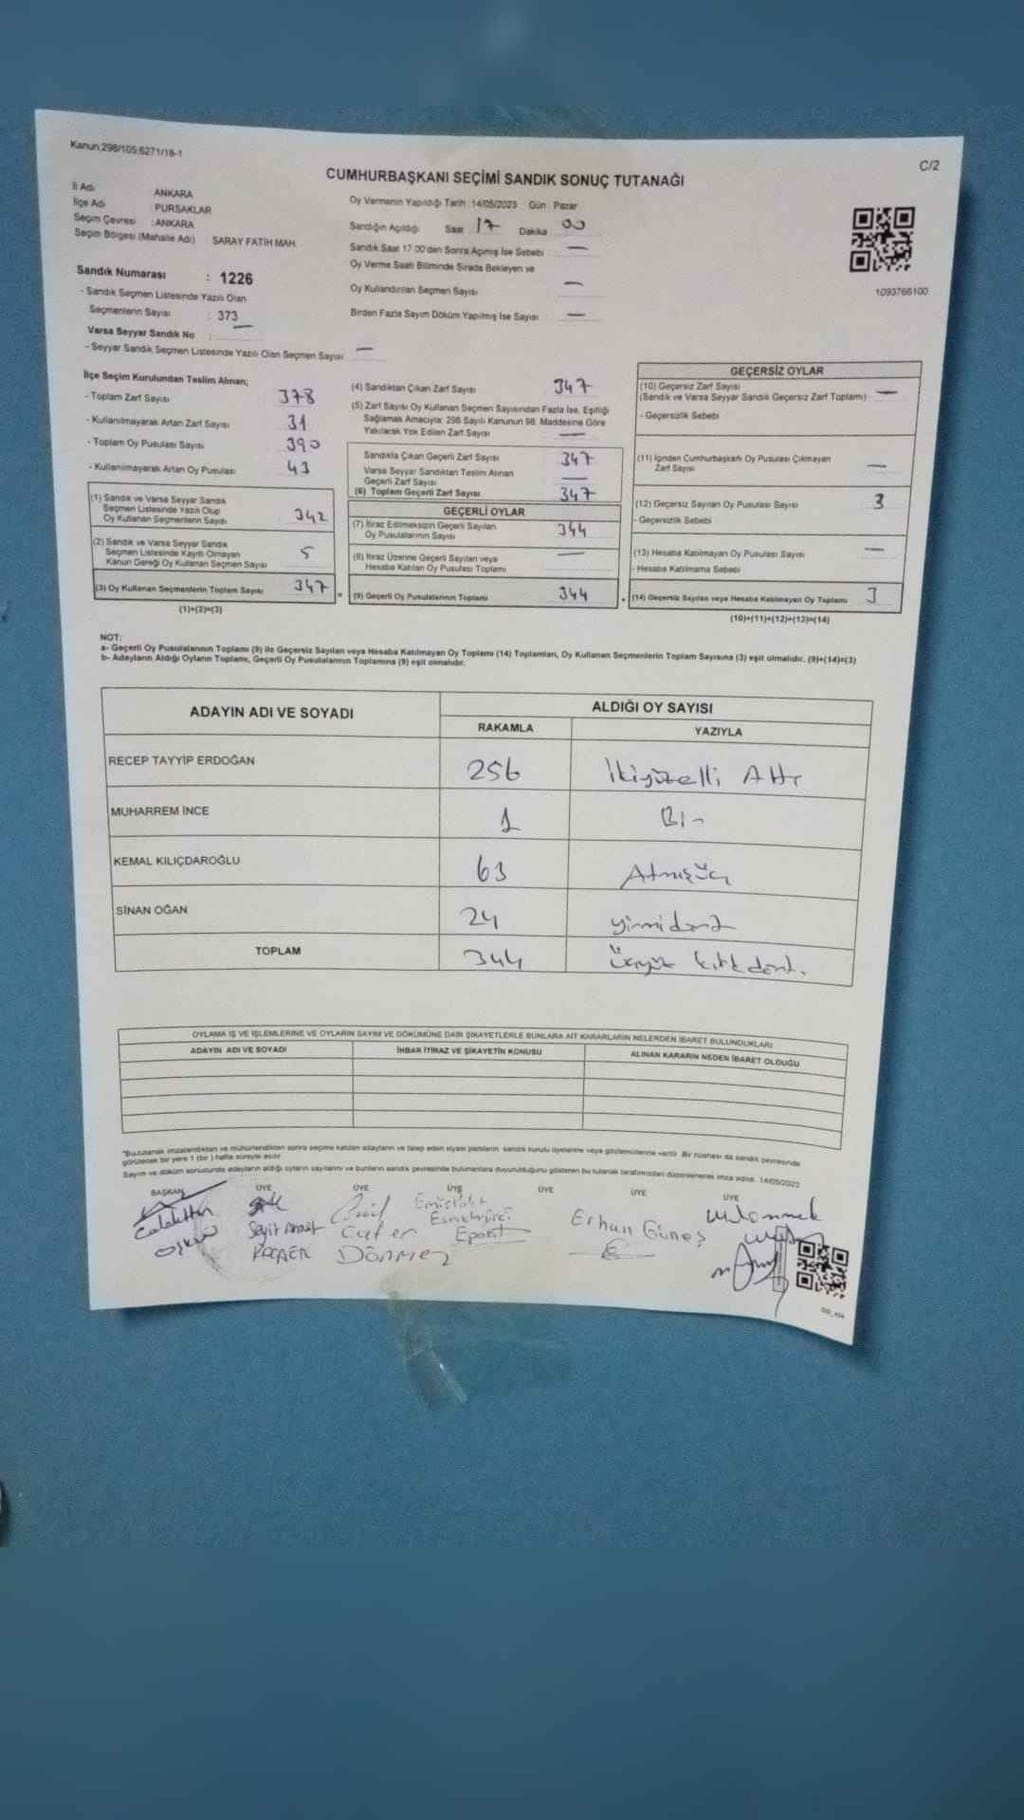 Kanun;298/105;6271/18-1
C/2
CUMHURBAŞKANI SEÇİMİ SANDIK SONUÇ TUTANAĞI
İl Adı ANKARA
İlçe Adı PURSAKLAR
Seçim Çevresi :ANKARA
Seçim Bölgesi (Mahalle Adı) SARAY FATİH MAH.
Oy Vermenin Yapıldığı Tarih :14/05/2023 Gün : Pazar
Sandığın Açıldığı Saat 17 Dakika 00
Sandık Saat 17:00'den Sonra Açımış İse Sebebi —
Oy Verme Saati Bitiminde Sırada Bekleyen ve
Oy Kullandırılan Seçmen Sayısı —
Birden Fazla Sayım Döküm Yapılmış İse Sayısı —
1093766100
Sandık Numarası : 1226
- Sandık Seçmen Listesinde Yazılı Olan
Seçmenlerin Sayısı : 373
Varsa Seyyar Sandık No —
- Seyyar Sandık Seçmen Listesinde Yazılı Olan Seçmen Sayısı —
İlçe Seçim Kurulundan Teslim Alınan;
- Toplam Zarf Sayısı 378
- Kullanılmayarak Artan Zarf Sayısı 31
- Toplam Oy Pusulası Sayısı 390
- Kullanılmayarak Artan Oy Pusulası 43
(1) Sandık ve Varsa Seyyar Sandık
Seçmen Listesinde Yazılı Olup
Oy Kullanan Seçmenlerin Sayısı 342
(2) Sandık ve Varsa Seyyar Sandık
Seçmen Listesinde Kayıtlı Olmayan
Kanun Gereği Oy Kullanan Seçmen Sayısı 5
(3) Oy Kullanan Seçmenlerin Toplam Sayısı 347
(1)+(2)=(3)
(4) Sandıktan Çıkan Zarf Sayısı 347
(5) Zarf Sayısı Oy Kullanan Seçmen Sayısından Fazla İse, Eşitliği
Sağlamak Amacıyla; 298 Sayılı Kanunun 98. Maddesine Göre
Yakılarak Yok Edilen Zarf Sayısı —
Sandıkla Çıkan Geçerli Zarf Sayısı 347
Varsa Seyyar Sandıktan Teslim Alınan
Geçerli Zarf Sayısı —
(6) Toplam Geçerli Zarf Sayısı 347
GEÇERLİ OYLAR
(7) İtiraz Edilmeksizin Geçerli Sayılan
Oy Pusulalarının Sayısı 344
(8) İtiraz Üzerine Geçerli Sayılan veya
Hesaba Katılan Oy Pusulası Toplamı —
(9) Geçerli Oy Pusulalarının Toplamı 344
GEÇERSİZ OYLAR
(10) Geçersiz Zarf Sayısı —
(Sandık ve Varsa Seyyar Sandık Geçersiz Zarf Toplamı)
- Geçersizlik Sebebi
(11) İçinden Cumhurbaşkanı Oy Pusulası Çıkmayan
Zarf Sayısı —
(12) Geçersiz Sayılan Oy Pusulası Sayısı 3
- Geçersizlik Sebebi
(13) Hesaba Katılmayan Oy Pusulası Sayısı —
- Hesaba Katılmama Sebebi
(14) Geçersiz Sayılan veya Hesaba Katılmayan Oy Toplamı 3
(10)+(11)+(12)+(13)=(14)
NOT:
a- Geçerli Oy Pusulalarının Toplamı (9) ile Geçersiz Sayılan veya Hesaba Katılmayan Oy Toplamı (14) Toplamları, Oy Kullanan Seçmenlerin Toplam Sayısına (3) eşit olmalıdır. (9)+(14)=(3)
b- Adayların Aldığı Oyların Toplamı, Geçerli Oy Pusulalarının Toplamına (9) eşit olmalıdır.
ADAYIN ADI VE SOYADI
ALDIĞI OY SAYISI
RAKAMLA YAZIYLA
RECEP TAYYİP ERDOĞAN 256 İkiyüzelli Altı
MUHARREM İNCE 1 Bir
KEMAL KILIÇDAROĞLU 63 Atmışüç
SİNAN OĞAN 24 yirmidört
TOPLAM 344 üçyüz kırkdört.
OYLAMA İŞ VE İŞLEMLERİNE VE OYLARIN SAYIM VE DÖKÜMÜNE DAİR ŞİKAYETLERLE BUNLARA AİT KARARLARIN NELERDEN İBARET BULUNDUKLARI
ADAYIN ADI VE SOYADI İHBAR İTİRAZ VE ŞİKAYETİN KONUSU ALINAN KARARIN NEDEN İBARET OLDUĞU
*Bu tutanak imzalandıktan ve mühürlendikten sonra seçime katılan adayların ve talep eden siyasi partilerin sandık kurulu üyelerine veya gözlemcilerine verilir. Bir nüshası da sandık çevresinde
görülecek bir yere 1 (bir) hafta süreyle asılır
Sayım ve döküm sonucunda adayların aldığı oyların sayılarını ve bunların sandık çevresinde bulunanlara duyurulduğunu gösteren bu tutanak tarafımızdan düzenlenerek imza edildi. 14/05/2023
BAŞKAN ÜYE ÜYE ÜYE ÜYE ÜYE ÜYE
Celalettin
Seyit Ahmet
Cafer
DÖNMEZ
Erhan Güneş